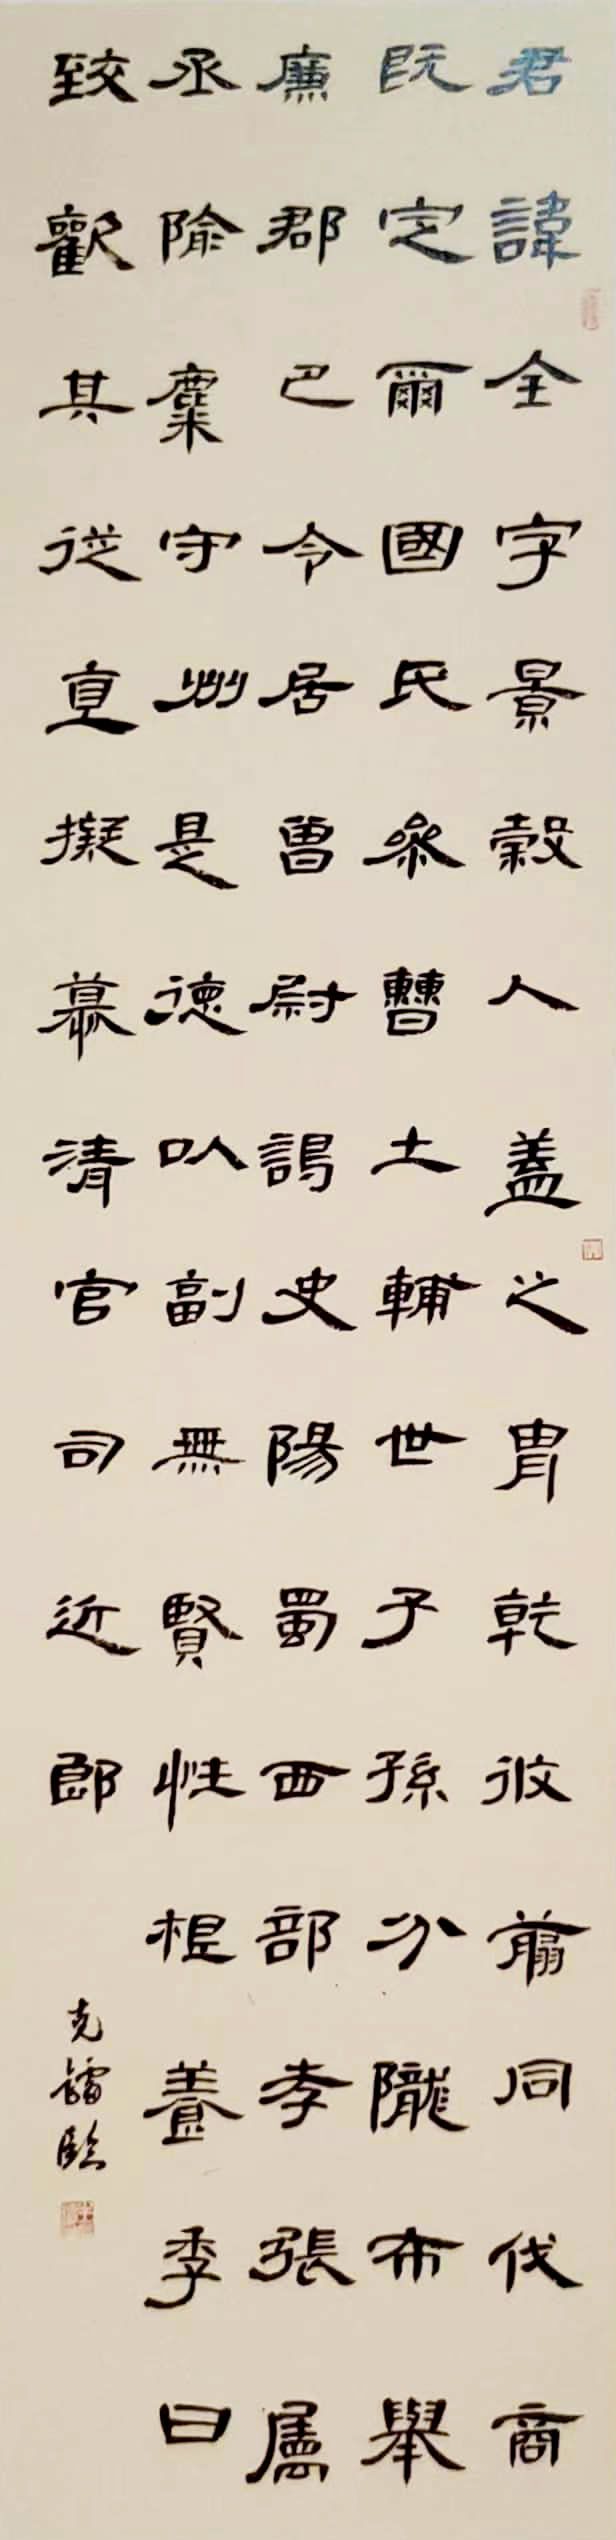 君諱全字景穀人蓋之胄乾攸翦同伐商
既定爾國氏參曹土輔世子孫分隴布舉
廉郡巴令居曾尉謁史陽蜀西部孝張屬
丞隃麋守州是德以副無賢性根養季曰
致歡其從直擬慕清官司近郎
克臨